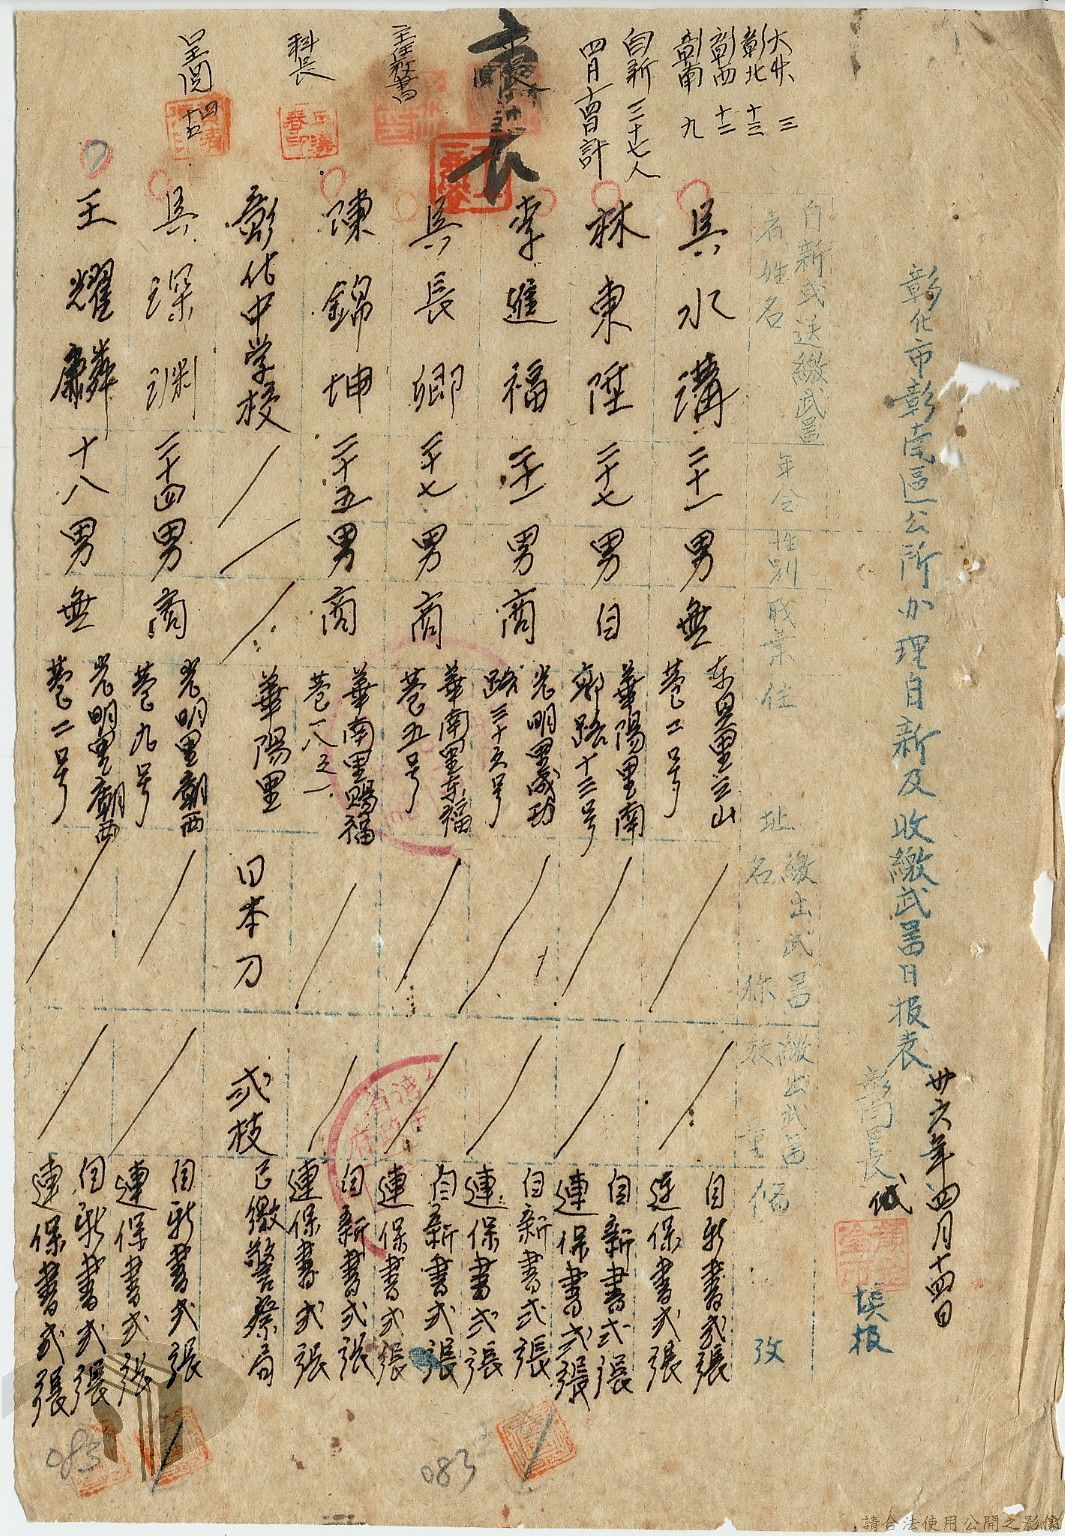 彰化市彰南區公所办理自新及收繳武器日报表
卅六年四月十四日
彰南區長
填报
自新或送繳武器
者姓名
年令
性別
职業
住址
繳出武器
名称
繳出武器
数量
備攷
大竹 三
彰北 十三
彰西 十二
彰南 九
自新 三十七人
四月十四日計
表
主任秘書
科長
呈閱 四
吳水溝 二十一 男 無
東里里三山
巷二号
自新書弍張
連保書弍張
林東陞 二十七 男 自
華陽里南
郭路十三号
自新書弍張
連保書弍張
李進福 二十一 男 商
光明里成功
路三十六号
自新書弍張
連保書弍張
吳長卿 二十七 男 商
華南里幸福
巷五号
自新書弍張
連保書弍張
陳錦坤 二十五 男 商
華南里賜福
巷一八之一
自新書弍張
連保書弍張
彰化中学校
華陽里
日本刀
弍枝
已繳警察局
吳深渊 二十四 男 商
光明里朝西
巷九号
自新書弍張
連保書弍張
王耀麟 十八 男 無
光明里朝西
巷二号
自新書弍張
連保書弍張
083
083
請合法使用公開之影像